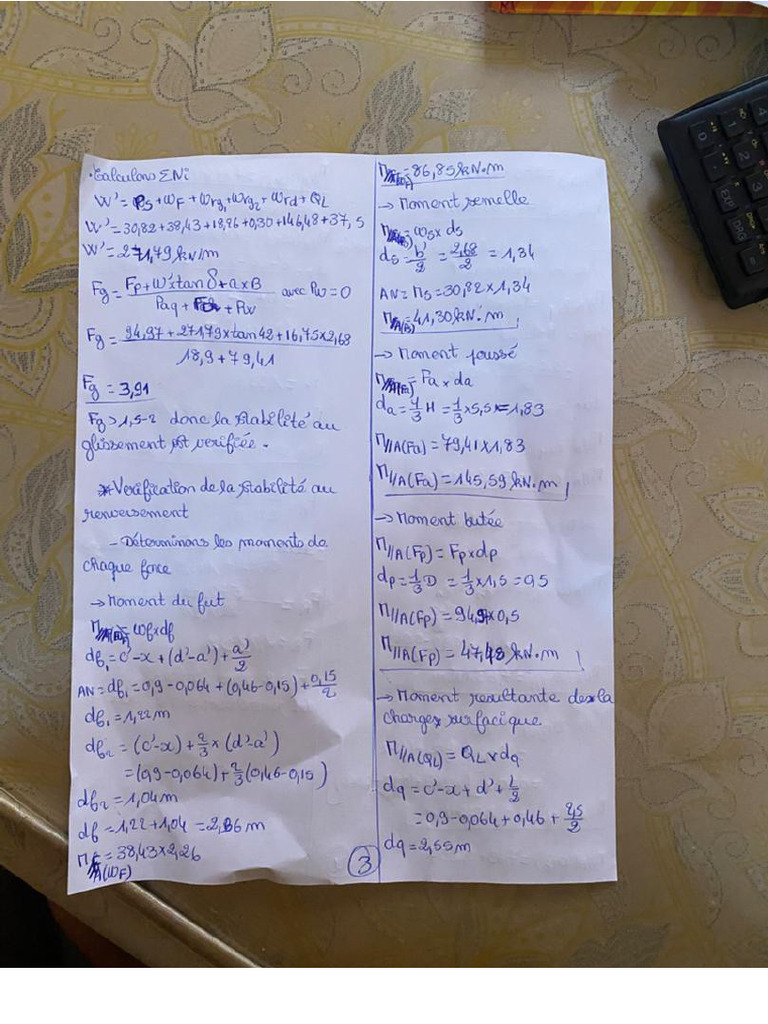 Calculons ΣNi
W' = Ps + WF + Wrg1 + Wrg2 + Wrd + QL
W' = 30,82 + 38,43 + 18,96 + 0,30 + 146,48 + 37,5
W' = 271,79 kN/m
Fg = (Fp + W'×tan δ + a×B) / (Paq + + Pw) avec Pw = 0
Fg = (94,97 + 271,79×tan42 + 16,75×2,68) / (18,9 + 79,41)
Fg = 3,91
Fg > 1,5-2 donc la stabilité au
glissement est verifiée.
*Verification de la stabilité au
renversement
- Déterminons les moments de
chaque force
→ Moment du fut
= Wf×df
df1 = c'-x + (d'-a') + a'/2
AN = df1 = 0,9 - 0,064 + (0,46-0,15) + 0,15/2
df1 = 1,22 m
df2 = (c'-x) + 2/3 × (d'-a')
= (0,9-0,064) + 2/3 (0,46-0,15)
df2 = 1,04m
df = 1,22 + 1,04 = 2,26 m
M = 38,43×2,26
/A(WF)
3
M = 86,85 kN.m
→ Moment semelle
M = Ws × ds
ds = b'/2 = 2,68/2 = 1,34
AN = Ms = 30,82 × 1,34
M = 41,30 kN.m
→ Moment poussé
M = Pa × da
da = 1/3 H = 1/3 × 5,5 = 1,83
M//A(Fa) = 79,41×1,83
M//A(Fa) = 145,59 kN.m
→ Moment butée
M//A(Fp) = Fp×dp
dp = 1/3 D = 1/3 × 1,5 = 0,5
M//A(Fp) = 94,9×0,5
M//A(Fp) = 47,48 kN.m
→ Moment resultante de la
charge surfacique
M//A(QL) = QL × dq
dq = c'-x + d' + L/2
= 0,9 - 0,064 + 0,46 + 2,5/2
dq = 2,55m